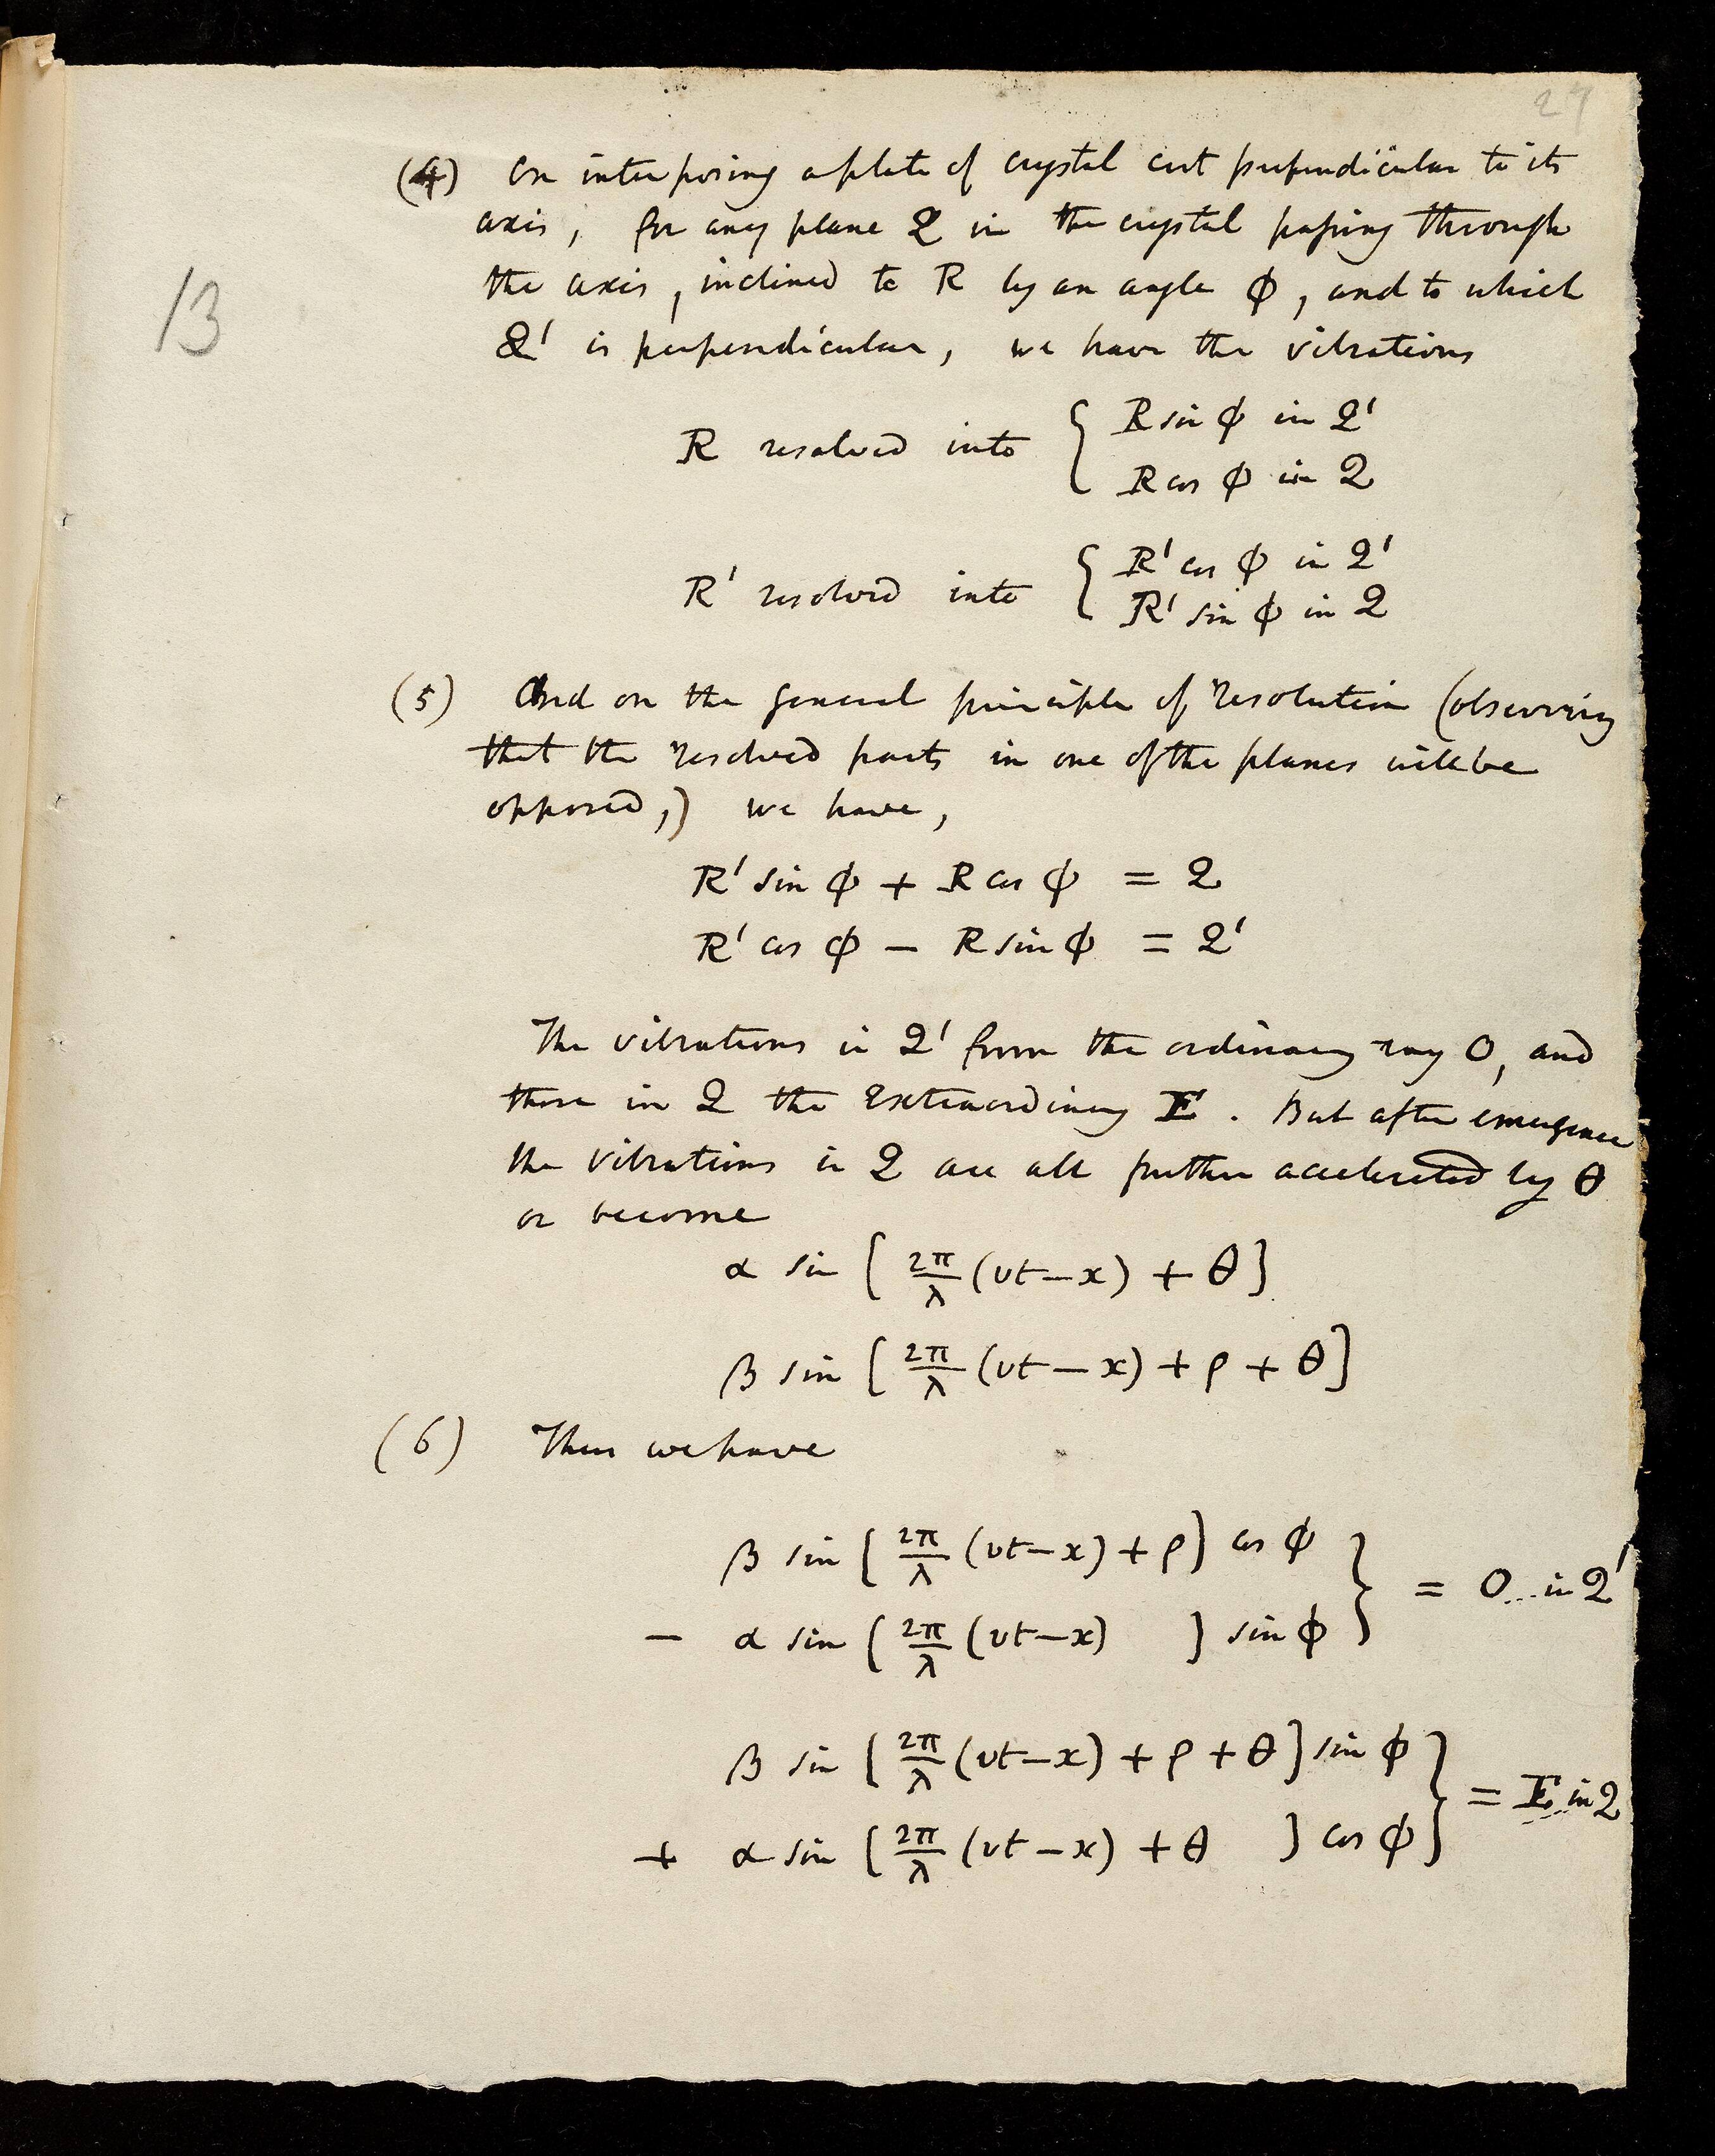 27
(4) On interposing a plate of crystal cut perpendicular to its
axis, for any plane Q in the crystal passing through
the axis, inclined to R by an angle ϕ, and to which
Q' is perpendicular, we have the vibrations
13
R resolved into { R sin ϕ in Q'
R cos ϕ in Q
R' resolved into { R' cos ϕ in Q'
R' sin ϕ in Q
(5) And on the general principle of resolution (observing
that the resolved parts in one of the planes will be
opposed,) we have,
R' sin ϕ + R cos ϕ = Q
R' cos ϕ – R sin ϕ = Q'
The vibrations in Q' form the ordinary ray O, and
those in Q the extraordinary E. But after emergence
the vibrations in Q are all further accelerated by θ
or become
α sin [ 2π/λ (vt – x) + θ ]
β sin [ 2π/λ (vt – x) + ρ + θ ]
(6) Thus we have
β sin [ 2π/λ (vt – x) + ρ ] cos ϕ
– α sin [ 2π/λ (vt – x) ] sin ϕ } = O... in Q'
β sin [ 2π/λ (vt – x) + ρ + θ ] sin ϕ
+ α sin [ 2π/λ (vt – x) + θ ] cos ϕ } = E... in Q